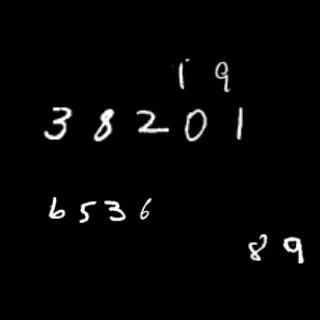 19
38201
6536
89